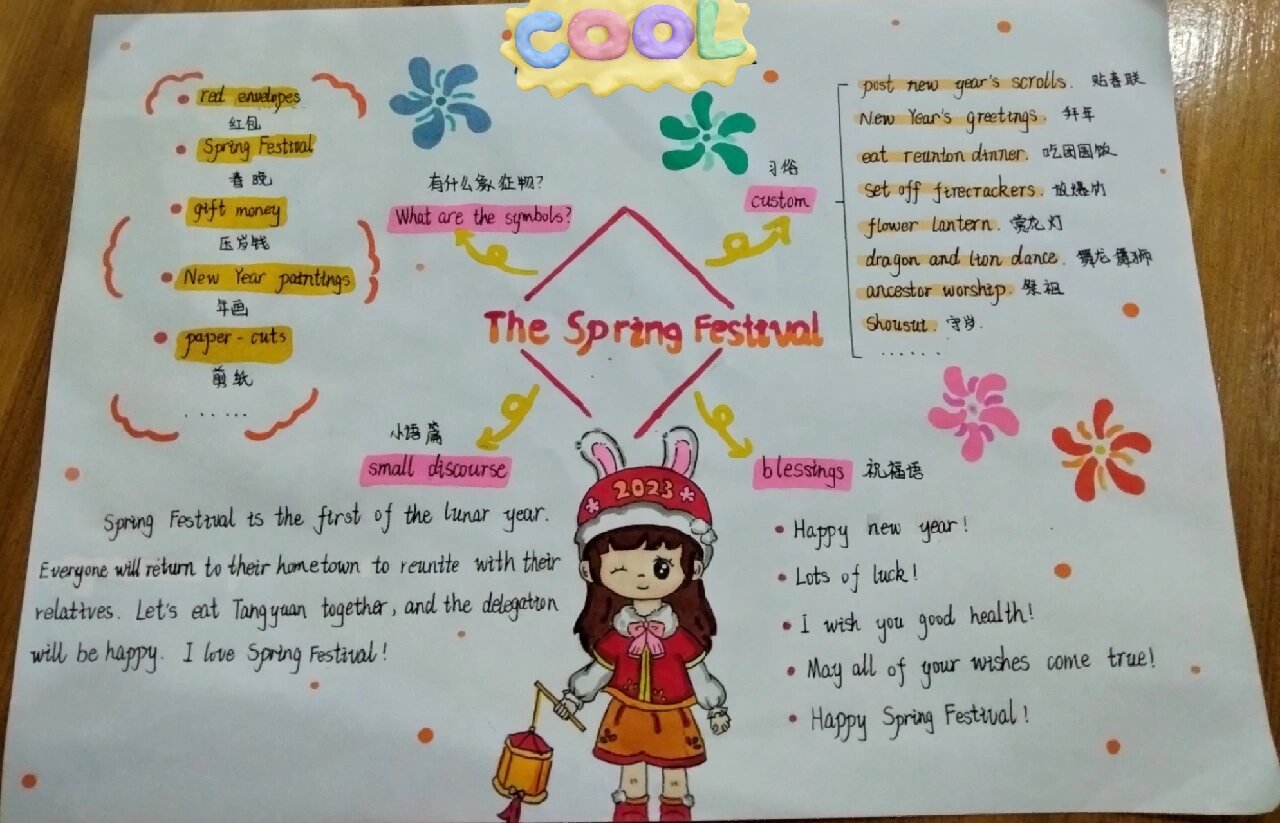 COOL
red envelopes
红包
Spring Festival
春晚
gift money
压岁钱
New Year paintings
年画
paper-cuts
剪纸
......
有什么象征物?
What are the symbols?
习俗
custom
post new year's scrolls. 贴春联
New Year's greetings. 拜年
eat reunion dinner. 吃团圆饭
set off firecrackers. 放爆竹
flower lantern. 赏花灯
dragon and lion dance. 舞龙舞狮
ancestor worship. 祭祖
Shousui. 守岁.
......
The Spring Festival
小语篇
small discourse
Spring Festival is the first of the lunar year.
Everyone will return to their hometown to reunite with their
relatives. Let's eat Tangyuan together, and the delegation
will be happy. I love Spring Festival!
2023
blessings 祝福语
Happy new year!
Lots of luck!
I wish you good health!
May all of your wishes come true!
Happy Spring Festival!